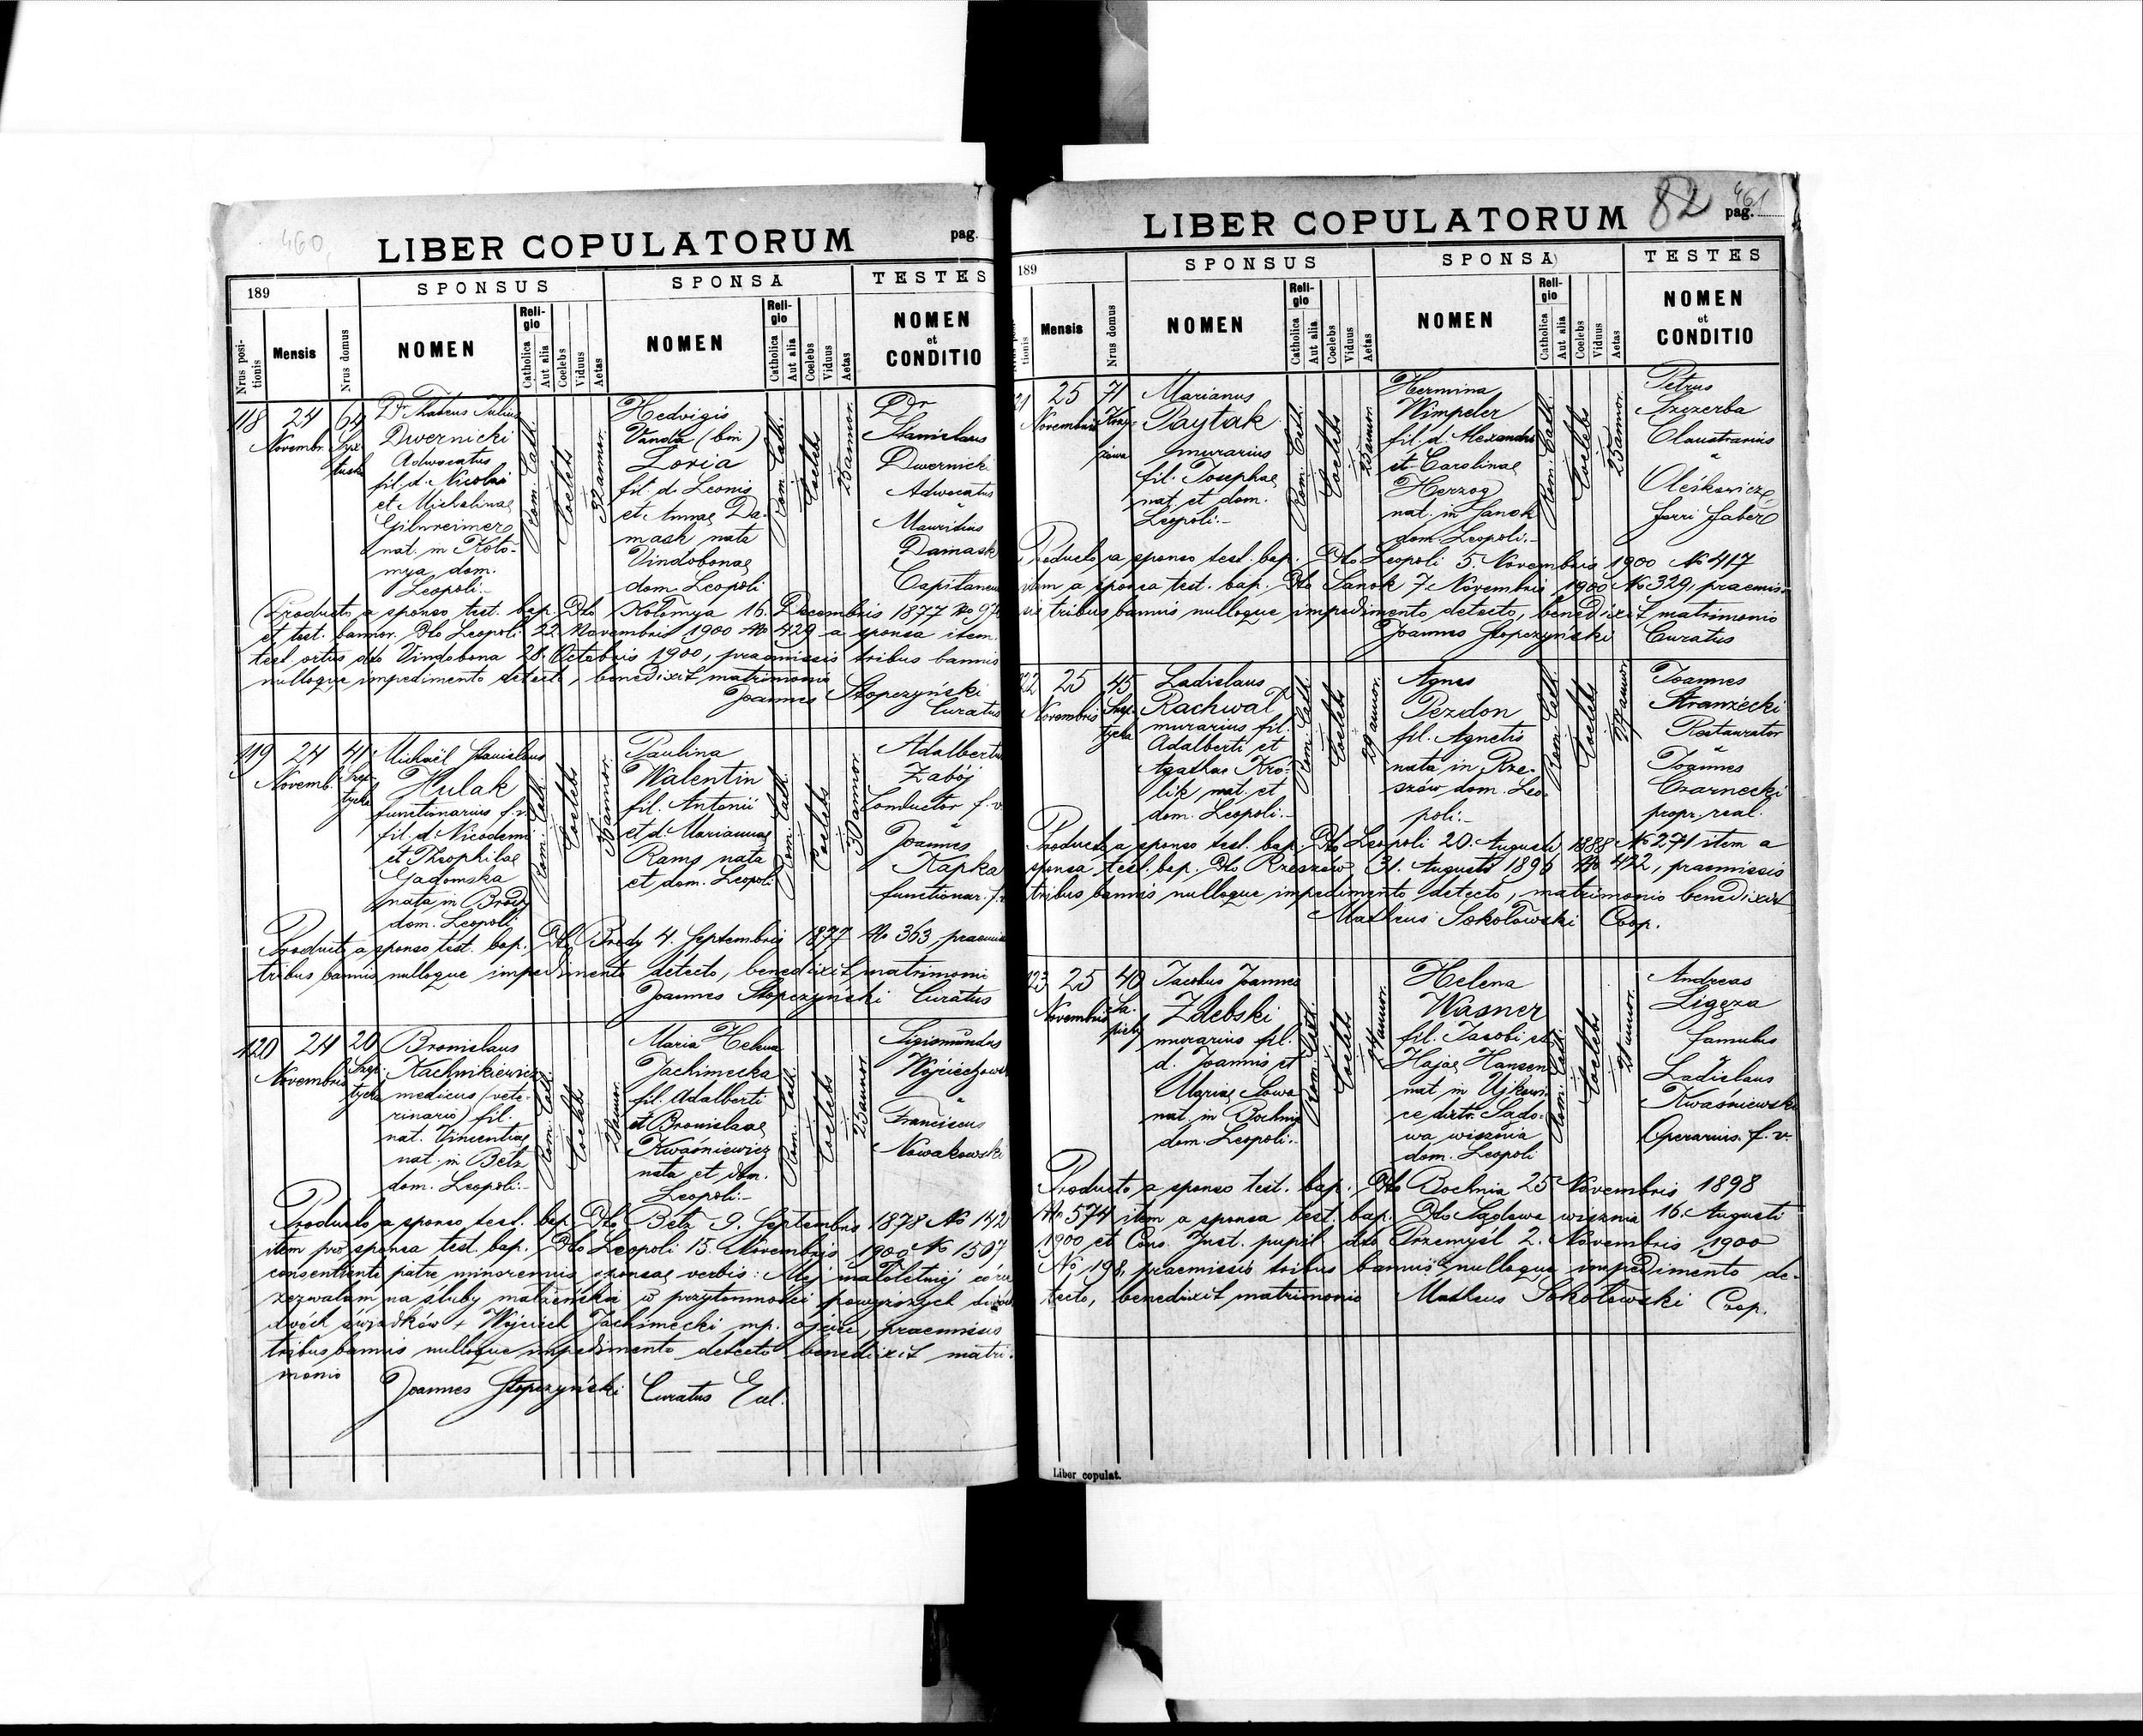 460
LIBER COPULATORUM
pag.
189
SPONSUS
SPONSA
TESTES
Nrus positionis
Mensis
Nrus domus
NOMEN
Religio
Catholica
Aut alia
Coelebs
Viduus
Aetas
NOMEN
Religio
Catholica
Aut alia
Coelebs
Viduus
Aetas
NOMEN
et
CONDITIO
118
24
Novembr.
64
Dr Thadeus Julius
Dwernicki
Advocatus
fil. d. Nicolai
et Michalinae
Gilnreiner
nat. in Koło-
mya, dom.
Leopoli.-
Rom. Cath.
Coelebs
32 annor.
Hedvigis
Vanda (bin)
Loria
fil. d. Leonis
et Annae Da-
mask nata
Vindobonae
dom. Leopoli
Rom. Cath.
Coelebs
25 annor.
Dr
Stanislaus
Dwernicki
Advocatus
"
Mauritius
Damask
Capitaneus
Producto a sponso test. bap. Dto Kołomya 16. Decembris 1877 No
et test. bannor. Dto Leopoli 22 Novembris 1900 No 429 a sponsa item.
test. ortus dto Vindobona 28. Octobris 1900, praemissis tribus bannis
nulloque impedimento detecto, benedixit matrimonio
Joannes Stopczyński
Curatus
119
24
Novemb.
41
Szep-
tycka
Michaël Stanislaus
Hulak
functionarius f. v.
fil. d. Nicodemi
et Theophilae
Gadomska
nata in Brody
dom. Leopoli
Rom. Cath.
Coelebs
annor.
Paulina
Walentin
fil. Antonii
et d. Mariannae
Rams nata
et dom. Leopoli
Rom. Cath.
Coelebs
30 annor.
Adalbertus
Zabój
Conductor f. v.
"
Joannes
Kapka
functionar. f.
Producto a sponso test. bap. Dto Brody 4. Septembris 1877 No 363, praemissis
tribus bannis nulloque impedimento detecto, benedixit matrimoni
Joannes Stopczyński Curatus
120
24
Novembris
20
Szep-
tycka
Bronislaus
Kachnikiewicz
medicus (vete-
rinario) fil.
nat. Vincentiae
nat. in Bełz
dom. Leopoli.-
Rom. Cath.
Coelebs
annor.
Maria Helena
Jachimecka
fil. Adalberti
et Bronislaae
Kwaśniewicz
nata et dom.
Leopoli.-
Rom. Cath.
Coelebs
23 annor.
Sigismundus
Wojciechowski
"
Franciscus
Nowakowski
Producto a sponso test. bap. Dto Bełz 9. Septembris 1878 No 142
item pro sponsa test. bap. Dto Leopoli 15. Novembris 1900 No 1507
consentiente patre minorennis sponsae verbis: Mej małoletniéj córce
zezwalam na śluby małżeńskie w przytomności powyższych
dwóch świadków + Wojciech Jachimecki mp. ojciec, praemissis
tribus bannis nulloque impedimento detecto benedixit matri-
monio
Joannes Stopczyński Curatus Eccl.
82
461
LIBER COPULATORUM
pag.
189
SPONSUS
SPONSA
TESTES
Mensis
Nrus domus
NOMEN
Religio
Catholica
Aut alia
Coelebs
Viduus
Aetas
NOMEN
Religio
Catholica
Aut alia
Coelebs
Viduus
Aetas
NOMEN
et
CONDITIO
21
25
Novembris
71
Marianus
Paytak
murarius
fil. Josephae
nat. et dom.
Leopoli.-
Rom. Cath.
Coelebs
25 annor.
Hermina
Wimpeler
fil. d. Alexandri
et Carolinae
Herzog
nat. in Sanok
dom. Leopoli.-
Rom. Cath.
Coelebs
25 annor.
Petrus
Szczerba
Claustrarius
"
Oleśkowicz
ferri faber
Producto a sponso test. bap. Dto Leopoli 5. Novembris 1900 No 417
item a sponsa test. bap. Dto Sanok 7. Novembris 1900 No 329, praemis-
sis tribus bannis nulloque impedimento detecto, benedixit matrimonio
Joannes Stopczyński Curatus
122
25
Novembris
45
Szep-
tycka
Ladislaus
Rachwał
murarius fil.
Adalberti et
Agathae Kró-
lik nat. et
dom. Leopoli.-
Rom. Cath.
Coelebs
29 annor.
Agnes
Pezdon
fil. Agnetis
nata in Rze-
szów dom. Leo-
poli.-
Rom. Cath.
Coelebs
27 annor.
Joannes
Stranżecki
Restaurator
"
Joannes
Czarnecki
propr. real.
Producto a sponso test. bap. Dto Leopoli 20. Augusti 1888 No 271 item a
sponsa test. bap. Dto Rzeszów 31. Augusti 1896 No 472, praemissis
tribus bannis nulloque impedimento detecto, matrimonio benedixit
Matheus Sokołowski Coop.
123
25
Novembris
40
Sa-
piehy
Jacobus Joannes
Zdebski
murarius fil.
d. Joannis et
Mariae Sowa
nat. in Bochnia
dom. Leopoli.-
Rom. Cath.
Coelebs
24 annor.
Helena
Wasner
fil. Jacobi et
Hajae Hansen
nat in Ujkowi-
ce distr. Sado-
wa wisznia
dom. Leopoli
Rom. Cath.
Coelebs
21 annor.
Andreas
Ligęza
famulus
"
Ladislaus
Kwaśniewski
Operarius f. v.
Producto a sponso test. bap. Dto Bochnia 25 Novembris 1898
No 574 item a sponsa test. bap. Dto Sądowa wisznia 16. Augusti
1900 et Cons. Inst. pupil dto Przemyśl 2. Novembris 1900
No 198, praemissis tribus bannis nulloque impedimento de-
tecto, benedixit matrimonio Matheus Sokołowski Coop.
Liber copulat.